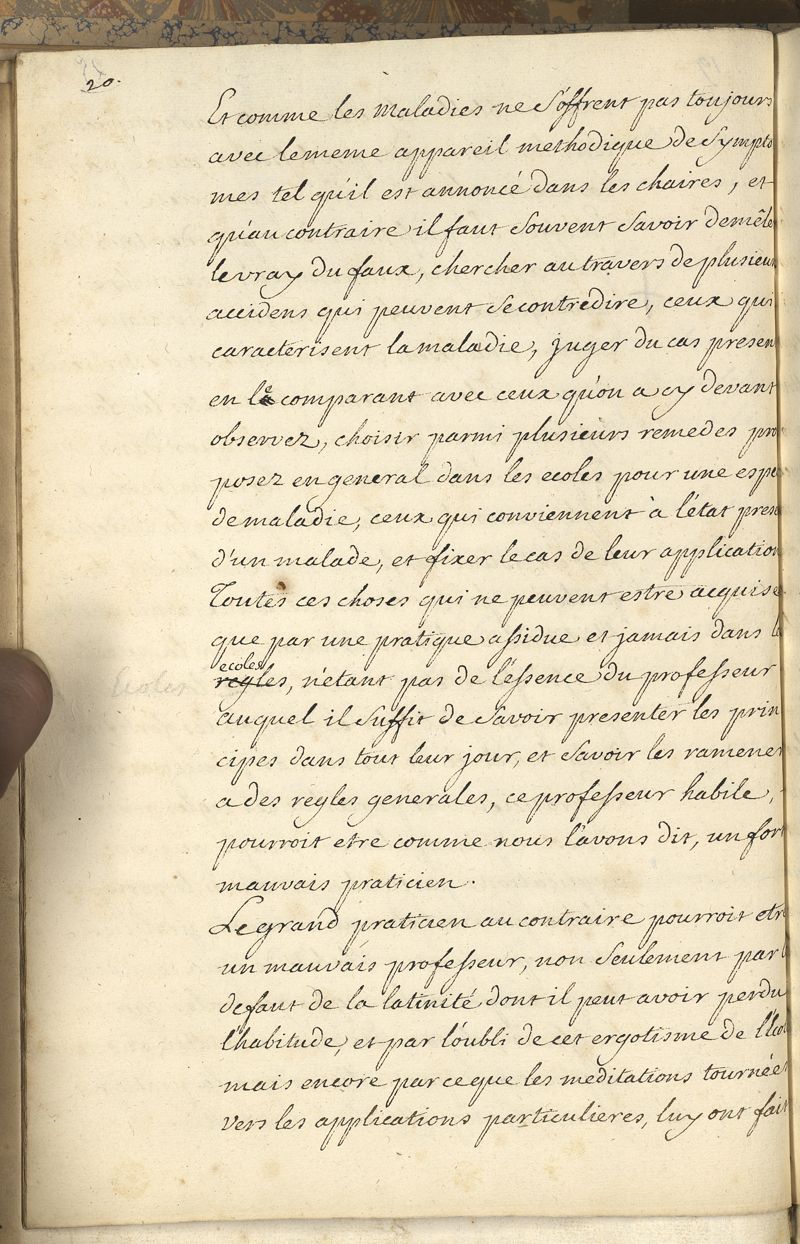 20.
Et comme les maladies ne s'offrent pas toujours
avec le meme appareil methodique de sympto
mes tel qu'il est annoncé dans les chaires, et
qu'au contraire il faut souvent savoir demêle
le vray du faux, chercher au travers de plusieurs
accidens qui peuvent se contredire, ceux qui
caracterisent la maladie, juger du cas presen
en le comparant avec ceux qu'on a cy devant
observez, choisir parmi plusieurs remedes pro
posez en general dans les ecoles pour une espe
de maladie, ceux qui conviennent à l'état prese
d'un malade, et fixer le cas de leur application
Toutes ces choses qui ne peuvent estre acquise
que par une pratique assidue et jamais dans l
ecoles
regles, n'étant pas de l'éssence du professeur
Ecoles
auquel il suffit de savoir presenter les prin
cipes dans tout leur jour, et savoir les ramener
a des regles generales, ce professeur habile,
pourroit etre comme nous l'avons dit, un fort
mauvais praticien.
Le grand praticien au contraire pourroit etr
un mauvais professeur, non seulement par l
defaut de la latinité dont il peut avoir perdu
l'habitude, et par l'oubli de cet ergotisme de l'écol
mais encore parce que les meditations tournées
vers les applications particulieres, luy ont fait